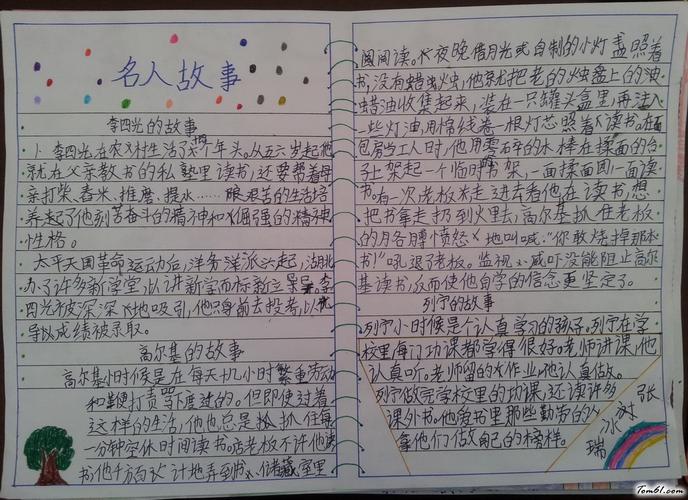 名人故事
李四光的故事
小李四光在农村生活了个年头。从五六岁起他
就在父亲教书的私塾里读书,还要帮着母
亲打柴、舂米、推磨、提水……艰苦的生活培
养起了他刻苦奋斗的精神和倔强的精神
性格。
太平天国革命运动后,洋务派兴起,湖北
办了许多新学堂,以讲新学而标新立异,李
四光被深深地吸引,他只身前去投考,以优
异以成绩被录取。
高尔基的故事
高尔基小时候是在每天十几小时繁重劳动
和鞭打责骂下度过的。但即使过着
这样的生活,他也总是抓住每
一分钟空休时间阅读。店老板不许他读
书,他千方百计地弄到书,储藏室里
阅读。夜晚借月光或自制的小灯照着
书,没有蜡虫火虫,他就把老的烛盘上的油
蜡油收集起来,装在一只罐头盒里,再注入
一些灯油,用棉线卷一根灯芯照着读书。在面
包房当工人时,他用零碎的木棒在揉面的台
子上架起一个临时书架,一面揉面团一面读
书。有一次老板走进去看他在读书,想
把书拿走扔到火里去,高尔基抓住老板
的胳膊愤怒地叫喊:“你敢烧掉那本
书!”吼退了老板。监视、威吓没能阻止高尔
基读书,反而使他自学的信念更坚定了。
列宁的故事
列宁小时候是个认真学习的孩子。列宁在学
校里每门功课都学得很好。老师讲课,他
认真听。老师留的作业,他认真做。
列宁做完学校里的功课,还读许多
课外书。他爱书里那些勤劳的人,
拿他们做自己的榜样。
张
树
冰
瑞
Tom61.com